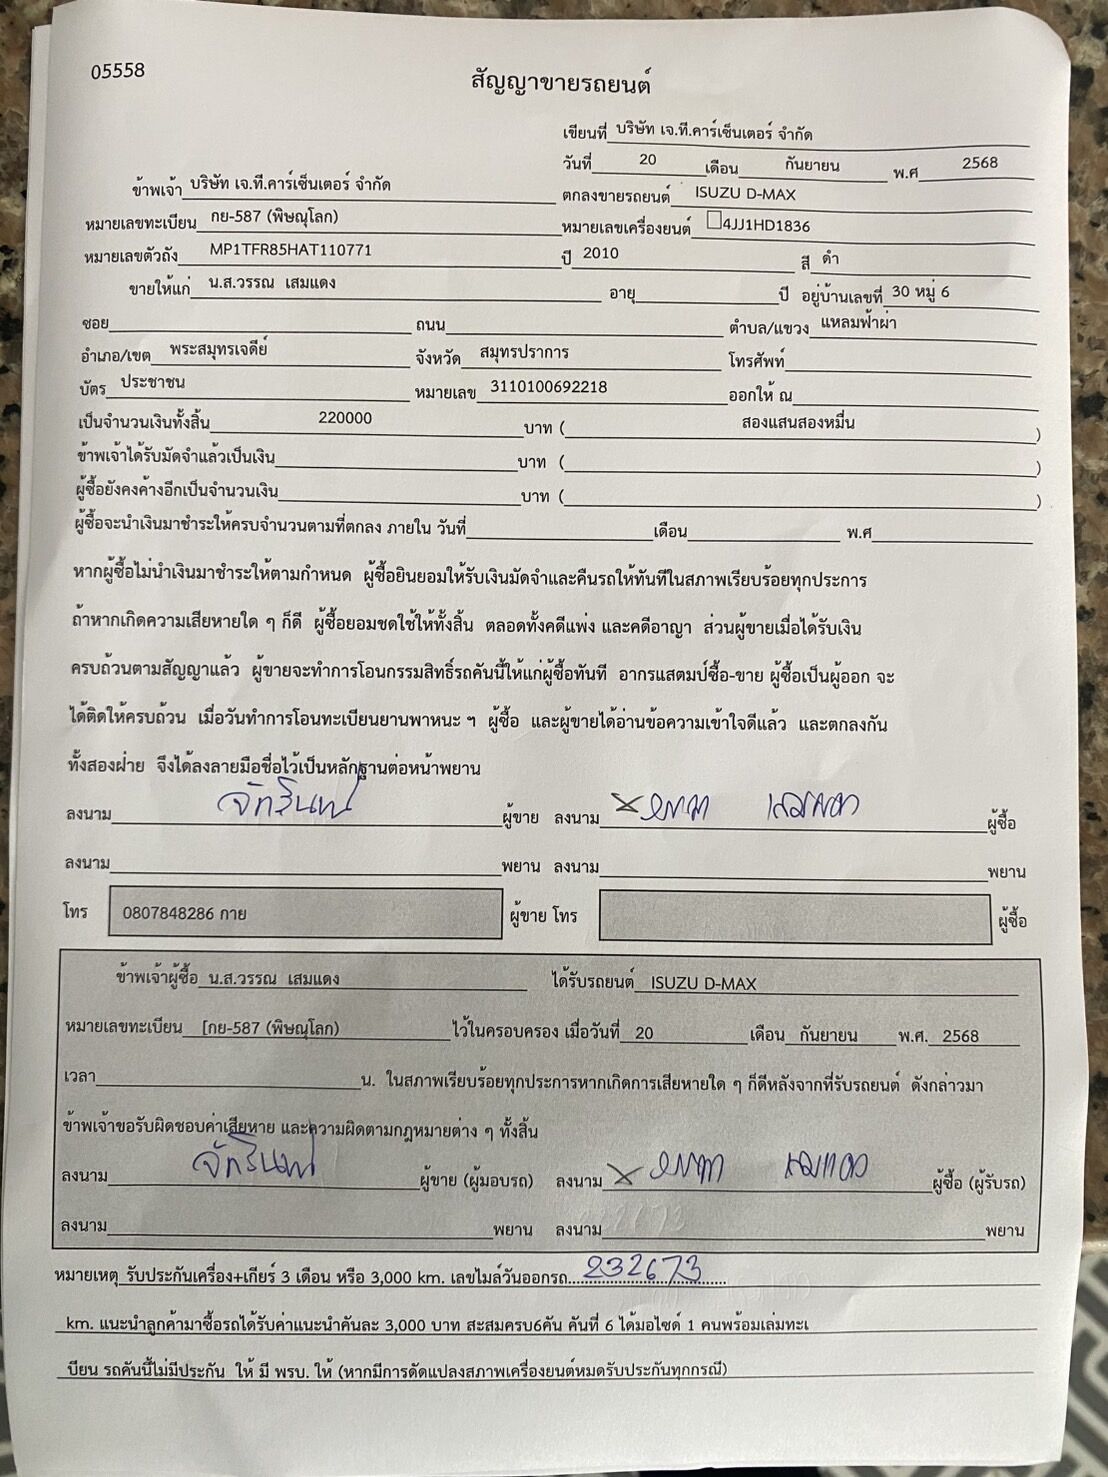 05558
สัญญาขายรถยนต์
เขียนที่ บริษัท เจ.ที.คาร์เซ็นเตอร์ จำกัด
วันที่ 20 เดือน กันยายน พ.ศ 2568
ข้าพเจ้า บริษัท เจ.ที.คาร์เซ็นเตอร์ จำกัด ตกลงขายรถยนต์ ISUZU D-MAX
หมายเลขทะเบียน กย-587 (พิษณุโลก) หมายเลขเครื่องยนต์ 4JJ1HD1836
หมายเลขตัวถัง MP1TFR85HAT110771 ปี 2010 สี ดำ
ขายให้แก่ น.ส.วรรณ เสมแดง อายุ ปี อยู่บ้านเลขที่ 30 หมู่ 6
ซอย ถนน ตำบล/แขวง แหลมฟ้าผ่า
อำเภอ/เขต พระสมุทรเจดีย์ จังหวัด สมุทรปราการ โทรศัพท์
บัตร ประชาชน หมายเลข 3110100692218 ออกให้ ณ
เป็นจำนวนเงินทั้งสิ้น 220000 บาท ( สองแสนสองหมื่น )
ข้าพเจ้าได้รับมัดจำแล้วเป็นเงิน บาท ( )
ผู้ซื้อยังคงค้างอีกเป็นจำนวนเงิน บาท ( )
ผู้ซื้อจะนำเงินมาชำระให้ครบจำนวนตามที่ตกลง ภายใน วันที่ เดือน พ.ศ
หากผู้ซื้อไม่นำเงินมาชำระให้ตามกำหนด ผู้ซื้อยินยอมให้รับเงินมัดจำและคืนรถให้ทันทีในสภาพเรียบร้อยทุกประการ
ถ้าหากเกิดความเสียหายใด ๆ ก็ดี ผู้ซื้อยอมชดใช้ให้ทั้งสิ้น ตลอดทั้งคดีแพ่ง และคดีอาญา ส่วนผู้ขายเมื่อได้รับเงิน
ครบถ้วนตามสัญญาแล้ว ผู้ขายจะทำการโอนกรรมสิทธิ์รถคันนี้ให้แก่ผู้ซื้อทันที อากรแสตมป์ซื้อ-ขาย ผู้ซื้อเป็นผู้ออก จะ
ได้ติดให้ครบถ้วน เมื่อวันทำการโอนทะเบียนยานพาหนะ ฯ ผู้ซื้อ และผู้ขายได้อ่านข้อความเข้าใจดีแล้ว และตกลงกัน
ทั้งสองฝ่าย จึงได้ลงลายมือชื่อไว้เป็นหลักฐานต่อหน้าพยาน
ลงนาม ผู้ขาย ลงนาม ผู้ซื้อ
ลงนาม พยาน ลงนาม พยาน
โทร 0807848286 กาย ผู้ขาย โทร ผู้ซื้อ
ข้าพเจ้าผู้ซื้อ น.ส.วรรณ เสมแดง ได้รับรถยนต์ ISUZU D-MAX
หมายเลขทะเบียน [กย-587 (พิษณุโลก) ไว้ในครอบครอง เมื่อวันที่ 20 เดือน กันยายน พ.ศ. 2568
เวลา น. ในสภาพเรียบร้อยทุกประการหากเกิดการเสียหายใด ๆ ก็ดีหลังจากที่รับรถยนต์ ดังกล่าวมา
ข้าพเจ้าขอรับผิดชอบค่าเสียหาย และความผิดตามกฎหมายต่าง ๆ ทั้งสิ้น
ลงนาม ผู้ขาย (ผู้มอบรถ) ลงนาม ผู้ซื้อ (ผู้รับรถ)
ลงนาม พยาน ลงนาม พยาน
หมายเหตุ รับประกันเครื่อง+เกียร์ 3 เดือน หรือ 3,000 km. เลขไมล์วันออกรถ 232673
km. แนะนำลูกค้ามาซื้อรถได้รับค่าแนะนำคันละ 3,000 บาท สะสมครบ6คัน คันที่ 6 ได้มอไซด์ 1 คนพร้อมเล่มทะเ
บียน รถคันนี้ไม่มีประกัน ให้ มี พรบ. ให้ (หากมีการดัดแปลงสภาพเครื่องยนต์หมดรับประกันทุกกรณี)